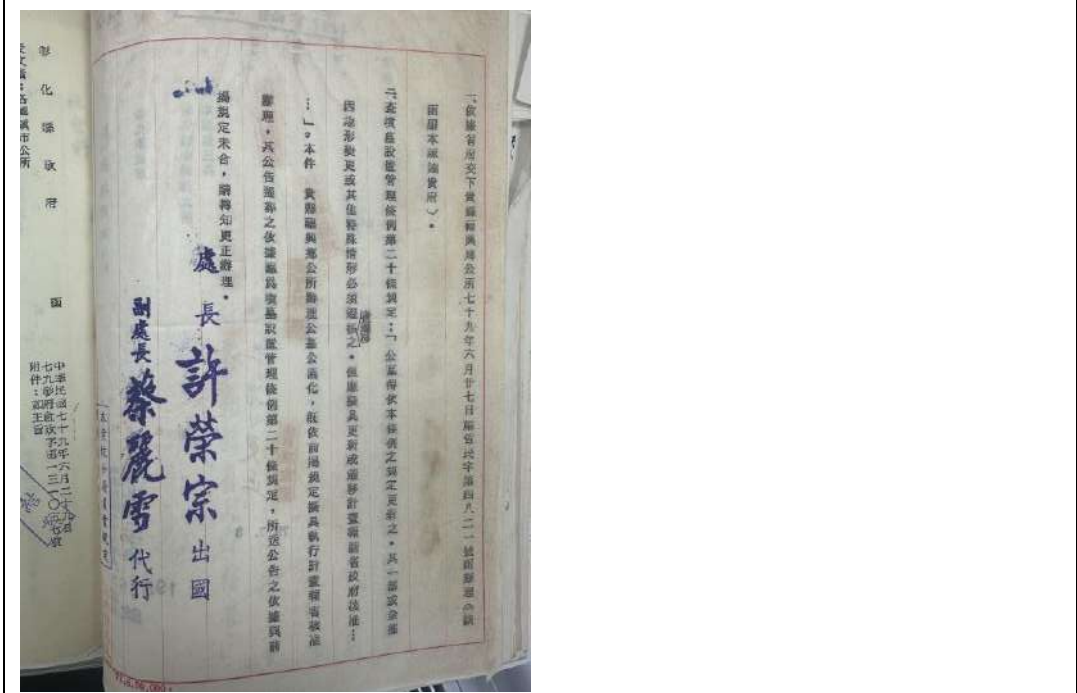 一、依據省府交下貴縣 鄉公所七十九年六月廿七日 字第四八二一號函辦理（該
函副本諒達貴府）。
二、查墳墓設置管理條例第二十條規定：「公墓得依本條例之規定更新之。其一部或全部
因地形變更或其他特殊情形必須遷移之。但應擬具更新或遷移計畫報請省政府核准…
…」。本件 貴縣 鄉公所辦理公墓公園化，既依前揭規定擬具執行計畫報省核准
辦理，其公告遷葬之依據應為墳墓設置管理條例第二十條規定，所送公告之依據與前
揭規定未合，請轉知更正辦理。
處長 許榮宗 出國
副處長 蔡麗雪 代行
彰化縣政府 函
中華民國七十九年六月二十九日
附件：如主旨